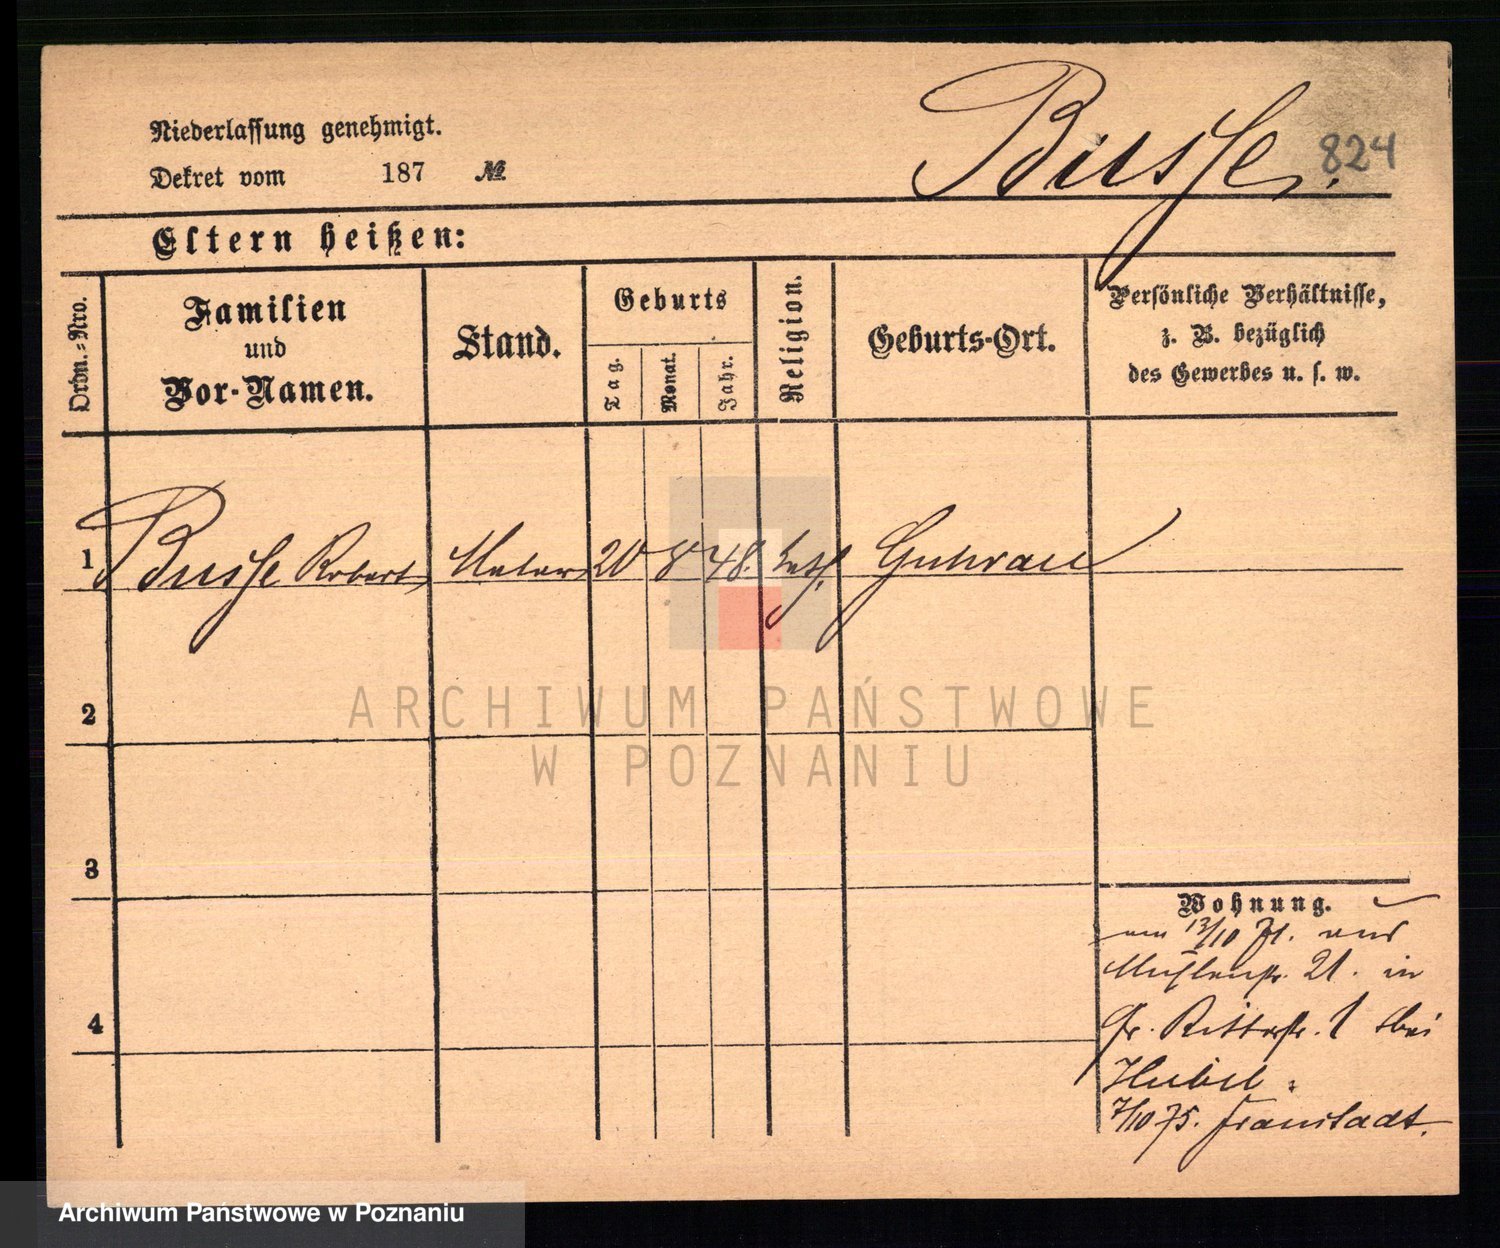 Niederlassung genehmigt.
Dekret vom 187 №
Busse.
824
Eltern heißen:
Ordn.-Nro.
Familien
und
Vor-Namen.
Stand.
Geburts
Tag.
Monat.
Jahr.
Religion.
Geburts-Ort.
Persönliche Verhältnisse,
z. B. bezüglich
des Gewerbes u. s. w.
1 Busse Robert Maler 20 8 48. kath. Guhrau
2
3
4
Wohnung.
am 13/10 71. aus
Mühlenstr. 21. in
Gr. Ritterstr. 1 bei
7/10 75. Fraustadt.
ARCHIWUM PAŃSTWOWE
W POZNANIU
Archiwum Państwowe w Poznaniu